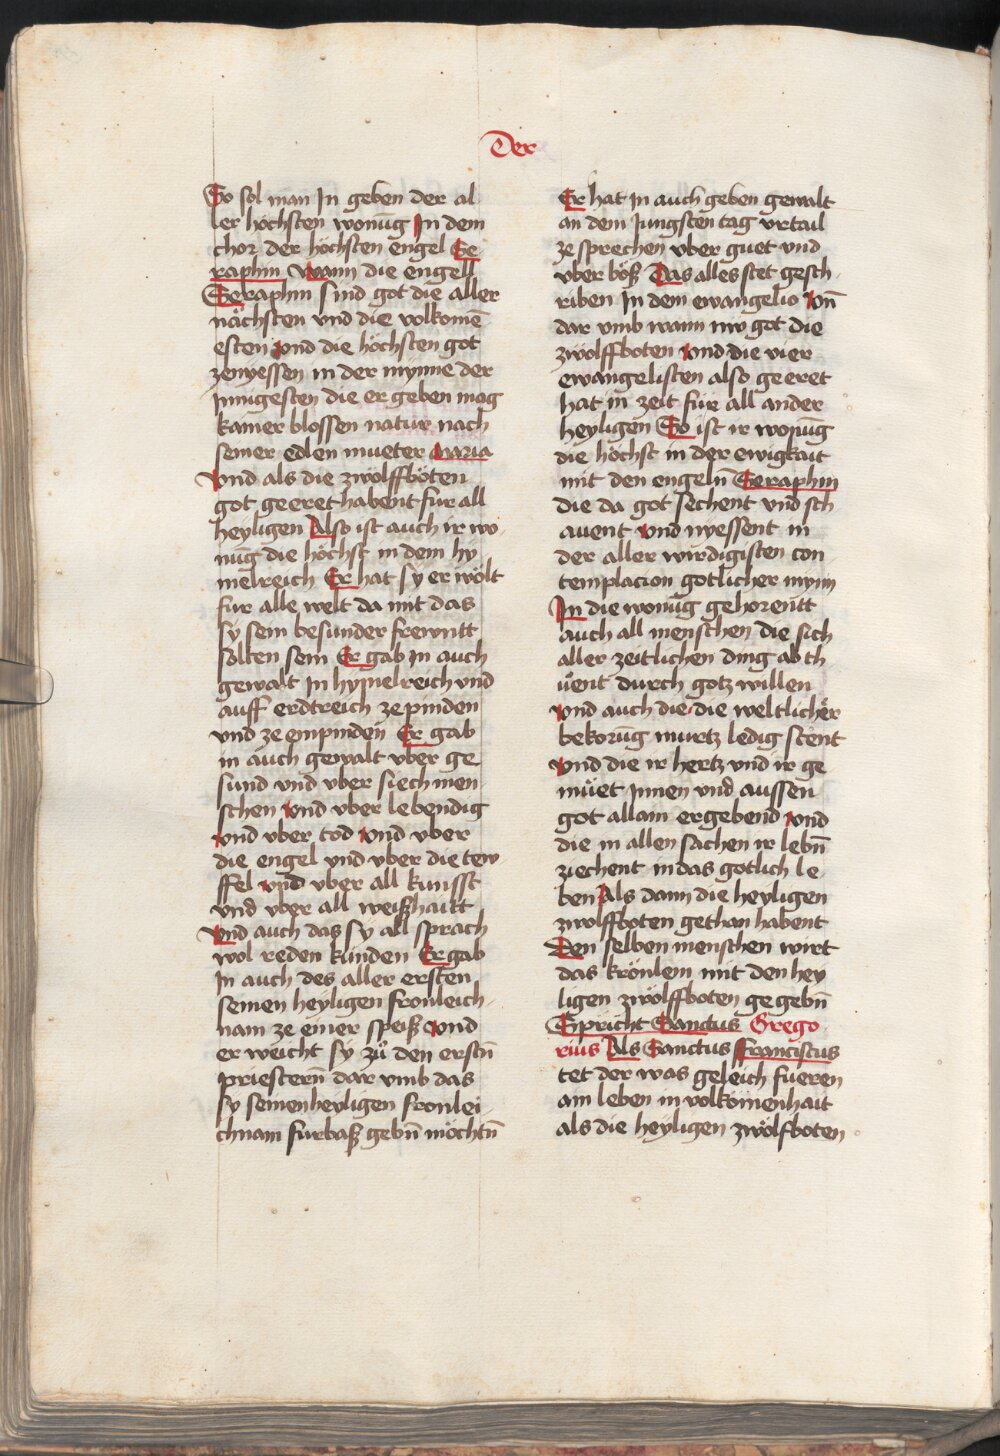 Der
So sol man In geben der al
ler höchsten wonūg In dem
chor der höchsten engel Se
raphin Wann die engell
Seraphin sind got die aller
nächsten vnd die volkomē
esten vnd die höchsten got
zenyessen in der mynne der
Innigesten die er geben mag
kainer blossen natur nach
seiner edlen mueter Maria
Vnd als die zwölffböten
got geeret habent fur all
heyligen Also ist auch ir wo
nūg die höchst in dem hy
melreich Er hat sy er wölt
fur alle welt da mit das
sy sein besunder frewntt
solten sein Er gab in auch
gewalt In hymelreich vnd
auff erdtreich ze pinden
vnd ze empinden Er gab
in auch gewalt vber ge
sund vnd vber siech men
schen vnd vber lebendig
vnd vber tod vnd vber
die engel vnd vber die tew
ffel vnd vber all kunsst
vnd vber all weißhaitt
Vnd auch das sy all sprach
wol reden kunden Er gab
In auch des aller ersten
seinen heyligen fronleich
nam ze einer speiß vnd
er weicht sy zů den erstn̄
priestern̄ dar vmb das
sy seinen heyligen fronlei
chnam furbaß gebn̄ möchtn̄
Er hat in auch geben gewalt
an dem Jungsten tag vrtail
ze sprechen vber guet vnd
vber böß Das alles stet gesch
riben In dem ewangelio Vn̄
dar vmb wann nw got die
zwölffboten vnd die vier
ewangelisten also geeret
hat in zeit fur all ander
heyligen So ist ir wonūg
die höchst in der ewigkait
mit den engeln̄ Seraphin
die da got sechent vnd sch
auent vnd nyessent in
der aller wirdigisten con
templacion gotlicher mynn
In die wonūg gehorentt
auch all menschen die sich
aller zeitlichen ding ab th
ůent durch gotz willen
Vnd auch die die weltlicher
bekorūg murtz ledig stent
Vnd die ir hertz vnd ir ge
müet Innen vnd aussen
got allain ergebend vnd
die in allen sachen ir lebn̄
ziechent in das gotlich le
ben Als dann die heyligen
zwolffboten gethan habent
Den selben menschen wirt
das krönlein mit den hey
ligen zwölffboten ge gebn̄
Spricht Sanctus Grego
rius Als Sanctus Franciscus
tet der was geleich fueren
ain leben in volkomenhait
als die heyligen zwölfboten